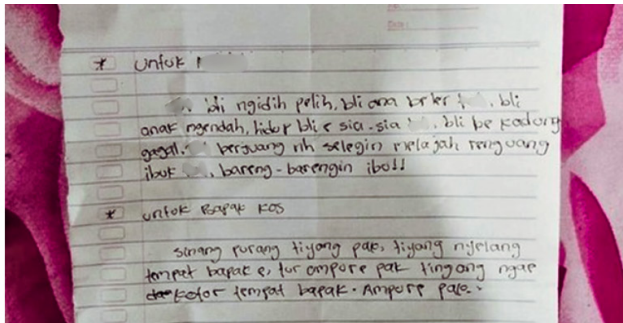 * untuk
bli ngidih pelih, bli ana br ler bli
anak ngendah, hidup bli e sia-sia bli be kadung
gagal, berjuang nh selegin melajah renguang
ibuk, bareng-barengin ibo!!
* untuk Bapak kos
sinang purang tiyang pak, tiyang nyelang
tempat bapak e, tur ampore pak tingang ngae
kotor tempat bapak. Ampore pak..